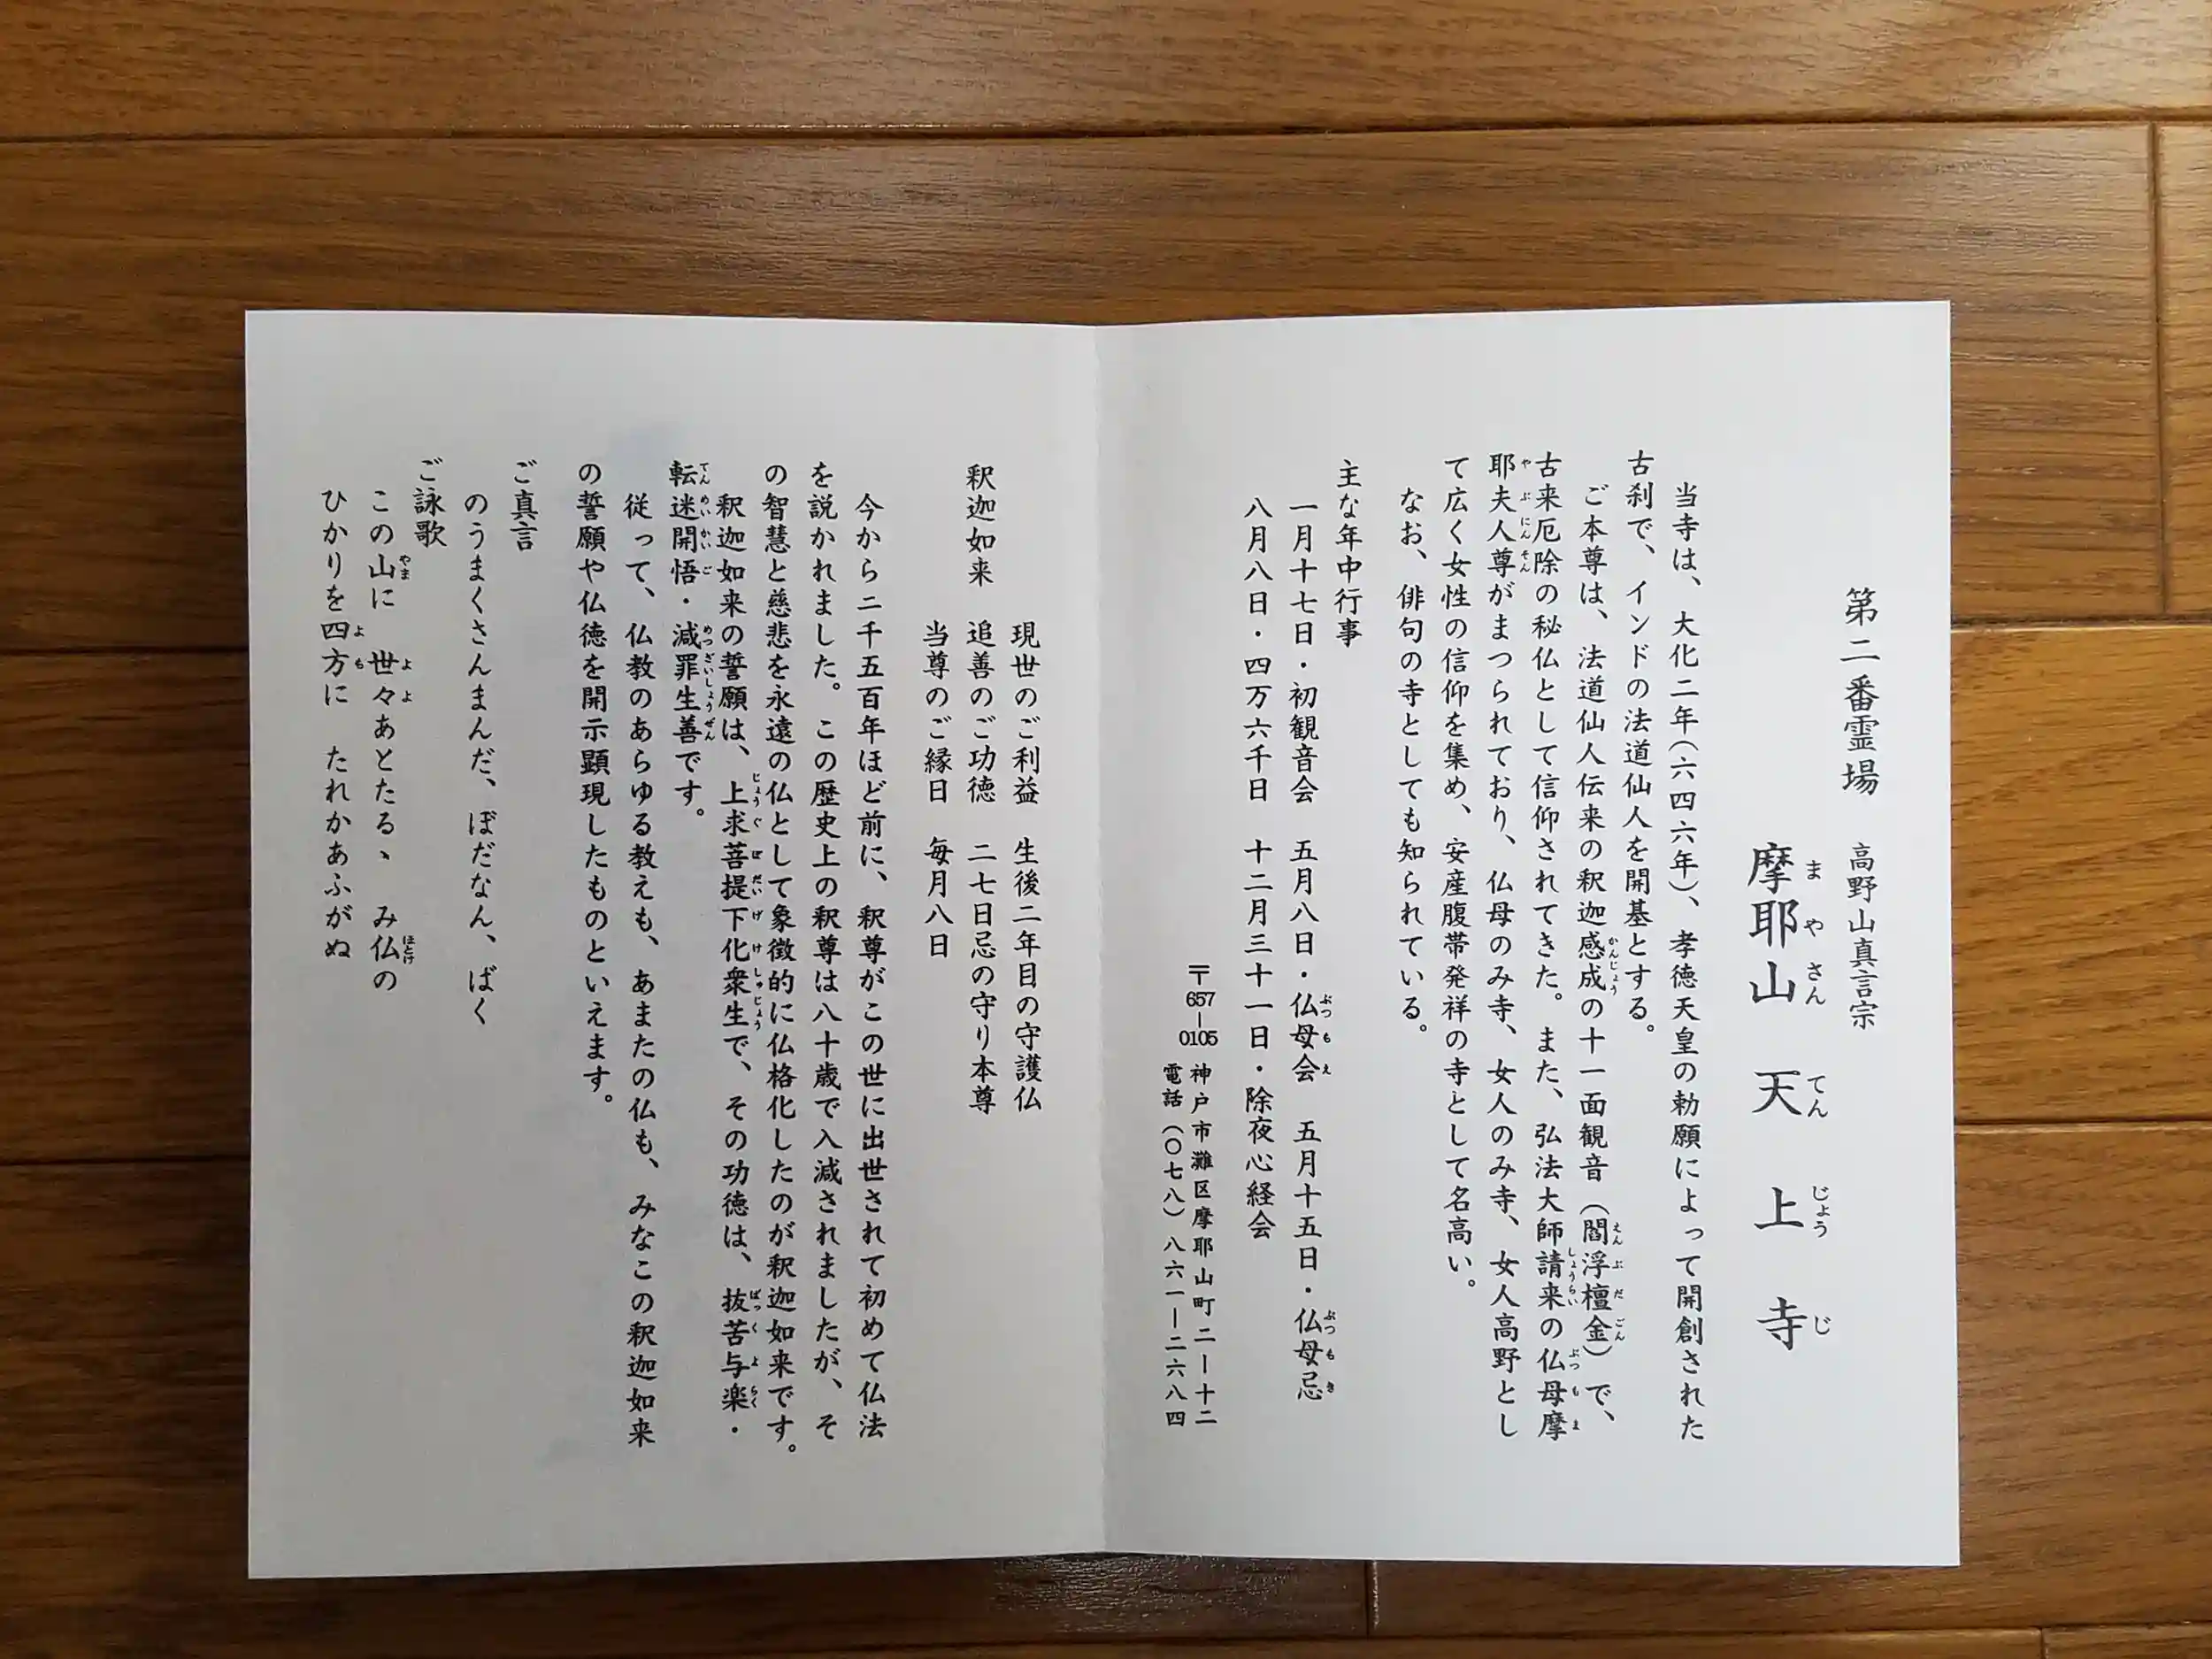 第二番霊場　高野山真言宗
摩耶山　天上寺
当寺は、大化二年（六四六年）、孝徳天皇の勅願によって開創された
古刹で、インドの法道仙人を開基とする。
ご本尊は、法道仙人伝来の釈迦感成の十一面観音（閻浮檀金）で、
古来厄除の秘仏として信仰されてきた。また、弘法大師請来の仏母摩
耶夫人尊がまつられており、仏母のみ寺、女人のみ寺、女人高野とし
て広く女性の信仰を集め、安産腹帯発祥の寺として名高い。
なお、俳句の寺としても知られている。
主な年中行事
一月十七日・初観音会　五月八日・仏母会　五月十五日・仏母忌
八月八日・四万六千日　十二月三十一日・除夜心経会
〒657-0105　神戸市灘区摩耶山町二ー十二
電話（〇七八）八六一ー二六八四
現世のご利益　生後二年目の守護仏
釈迦如来　追善のご功徳　二七日忌の守り本尊
当尊のご縁日　毎月八日
今から二千五百年ほど前に、釈尊がこの世に出世されて初めて仏法
を説かれました。この歴史上の釈尊は八十歳で入滅されましたが、そ
の智慧と慈悲を永遠の仏として象徴的に仏格化したのが釈迦如来です。
釈迦如来の誓願は、上求菩提下化衆生で、その功徳は、抜苦与楽・
転迷開悟・滅罪生善です。
従って、仏教のあらゆる教えも、あまたの仏も、みなこの釈迦如来
の誓願や仏徳を開示顕現したものといえます。
ご真言
のうまくさんまんだ、ぼだなん、ばく
ご詠歌
この山に　世々あとたるゝ　み仏の
ひかりを四方に　たれかあふがぬ